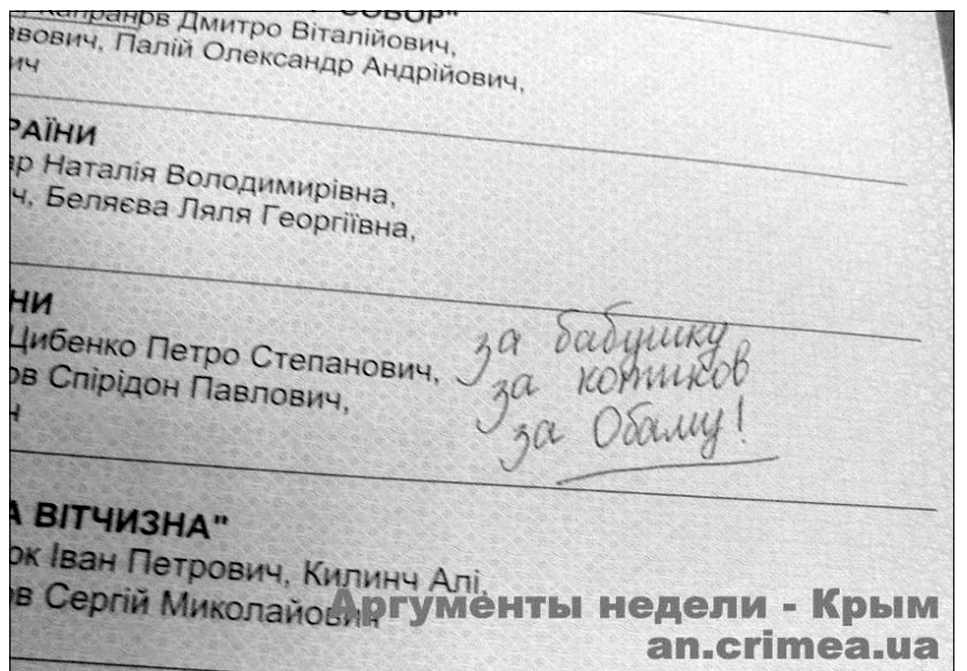 Капранов Дмитро Віталійович,
Палій Олександр Андрійович,
Наталія Володимирівна,
Беляєва Ляля Георгіївна,
Цибенко Петро Степанович,
Спірідон Павлович,
за бабушку
за котиков
за Обаму!
ВІТЧИЗНА"
Іван Петрович, Килинч Алі,
Сергій Миколайович
Аргументы недели - Крым
an.crimea.ua